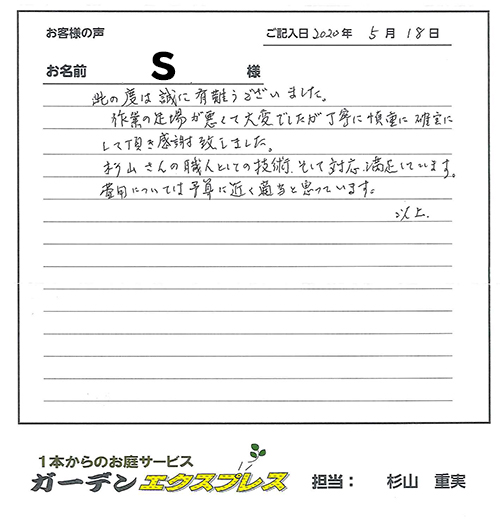 お客様の声
ご記入日2020年 5月18日
お名前 S 様
此の度は誠に有難うございました。
作業の足場が悪くて大変でしたが丁寧に慎重に確実に
して頂き感謝致しました。
杉山さんの職人としての技術、そして対応、満足しています。
費用については予算に近く適当と思っています。
以上.
1本からのお庭サービス
ガーデンエクスプレス 担当： 杉山 重実